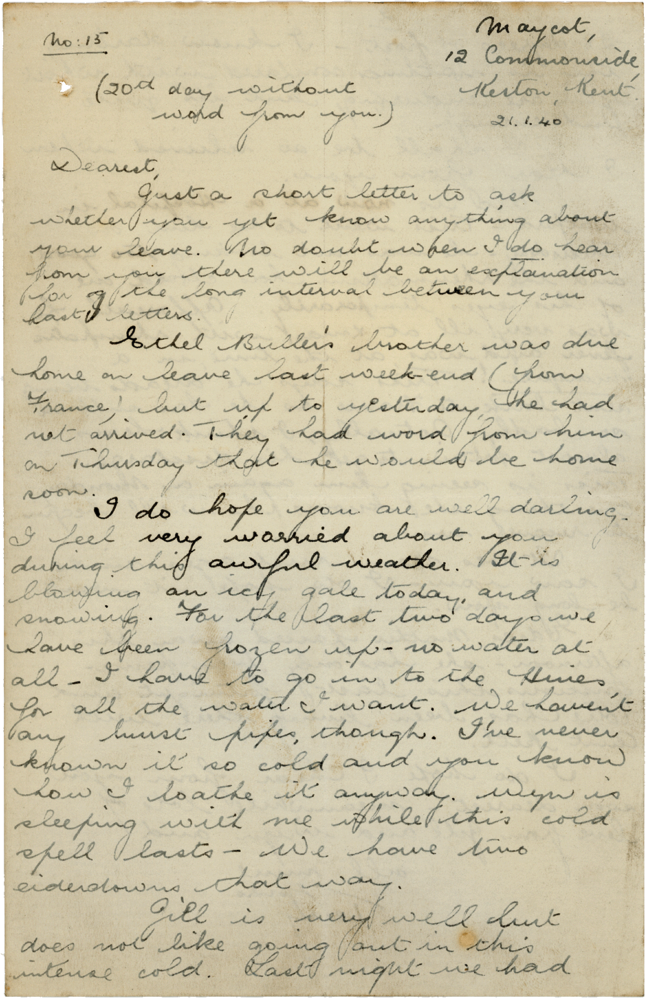 No: 15
Maycot,
12 Commonside,
Keston, Kent.
21.1.40
(20th day without
word from you.)
Dearest,
Just a short letter to ask
whether you yet know anything about
your leave. No doubt when I do hear
from you there will be an explanation
for the long interval between your
last letters.
Ethel Buller's brother was due
home on leave last week-end (from
France) but up to yesterday, he had
not arrived. They had word from him
on Thursday that he would be home
soon.
I do hope you are well darling.
I feel very worried about you
during this awful weather. It is
blowing an icy gale today, and
snowing. For the last two days we
have been frozen up - no water at
all - I have to go in to the Hines
for all the water I want. We haven't
any burst pipes, though. I've never
known it so cold and you know
how I loathe it anyway. Wyn is
sleeping with me while this cold
spell lasts - We have two
eiderdowns that way.
Gill is very well but
does not like going out in this
intense cold. Last night we had